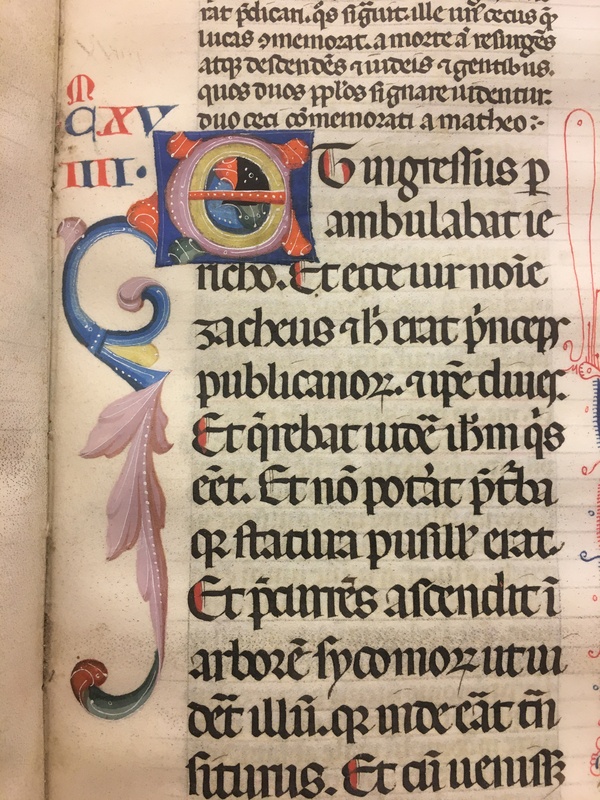 rat p̄dican. q̄s sigīt. ille un̄ cecus q̄
lucas ꝯmemorat. a morte ā resurgēs
atq; descendēs ⁊ iudeis ⁊ gentibus.
quos duos pp̄los signare uidentur.
duo ceci cōmemorati a matheo :-
M
CXV
IIII.
ET ingressus ꝑ
ambulabat ie
richo. Et ecce uir noīe
zacheus ⁊ h̄ erat p̄nceps
publicanoꝝ. ⁊ ip̄e diues.
Et q̄rebat uidē ih̄m q̇s
eēt. Et nō potāt p̄ t̄ba
qꝛ statura pusillꝰ erat.
Et p̄currēs ascendit ī
arborē sycomoꝝ ut ui
deēt illū. qꝛ inde eāt t̄n
siturus. Et cū uenisꝫ